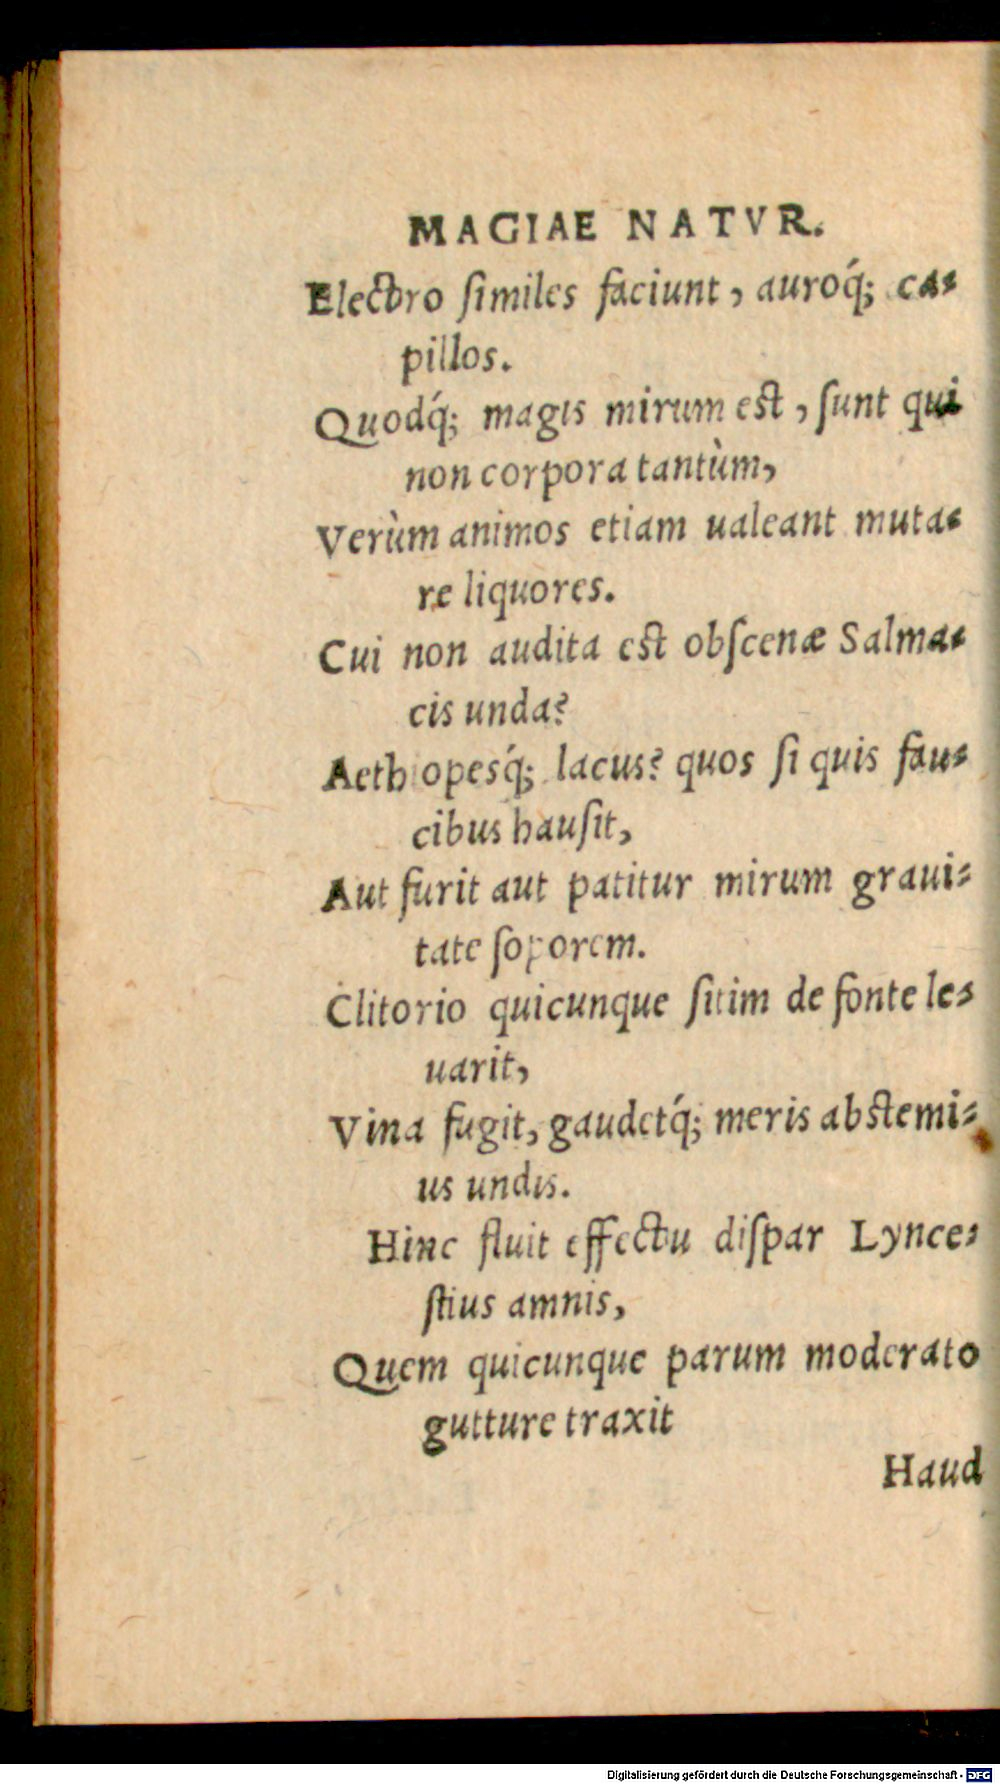 MAGIAE NATVR.
Electro ſimiles faciunt, auroq́; ca-
pillos.
Quodq́; magis mirum eſt, ſunt qui
non corpora tantùm,
Verùm animos etiam ualeant muta-
re liquores.
Cui non audita eſt obſcenæ Salma-
cis unda?
Aethiopesq́; lacus? quos ſi quis fau-
cibus hauſit,
Aut furit aut patitur mirum graui-
tate ſoporem.
Clitorio quicunque ſitim de fonte le-
uarit,
Vina fugit, gaudetq́; meris abſtemi-
us undis.
Hinc fluit effectu diſpar Lynce-
ſtius amnis,
Quem quicunque parum moderato
gutture traxit
Haud
Digitalisierung gefördert durch die Deutsche Forschungsgemeinschaft - DFG